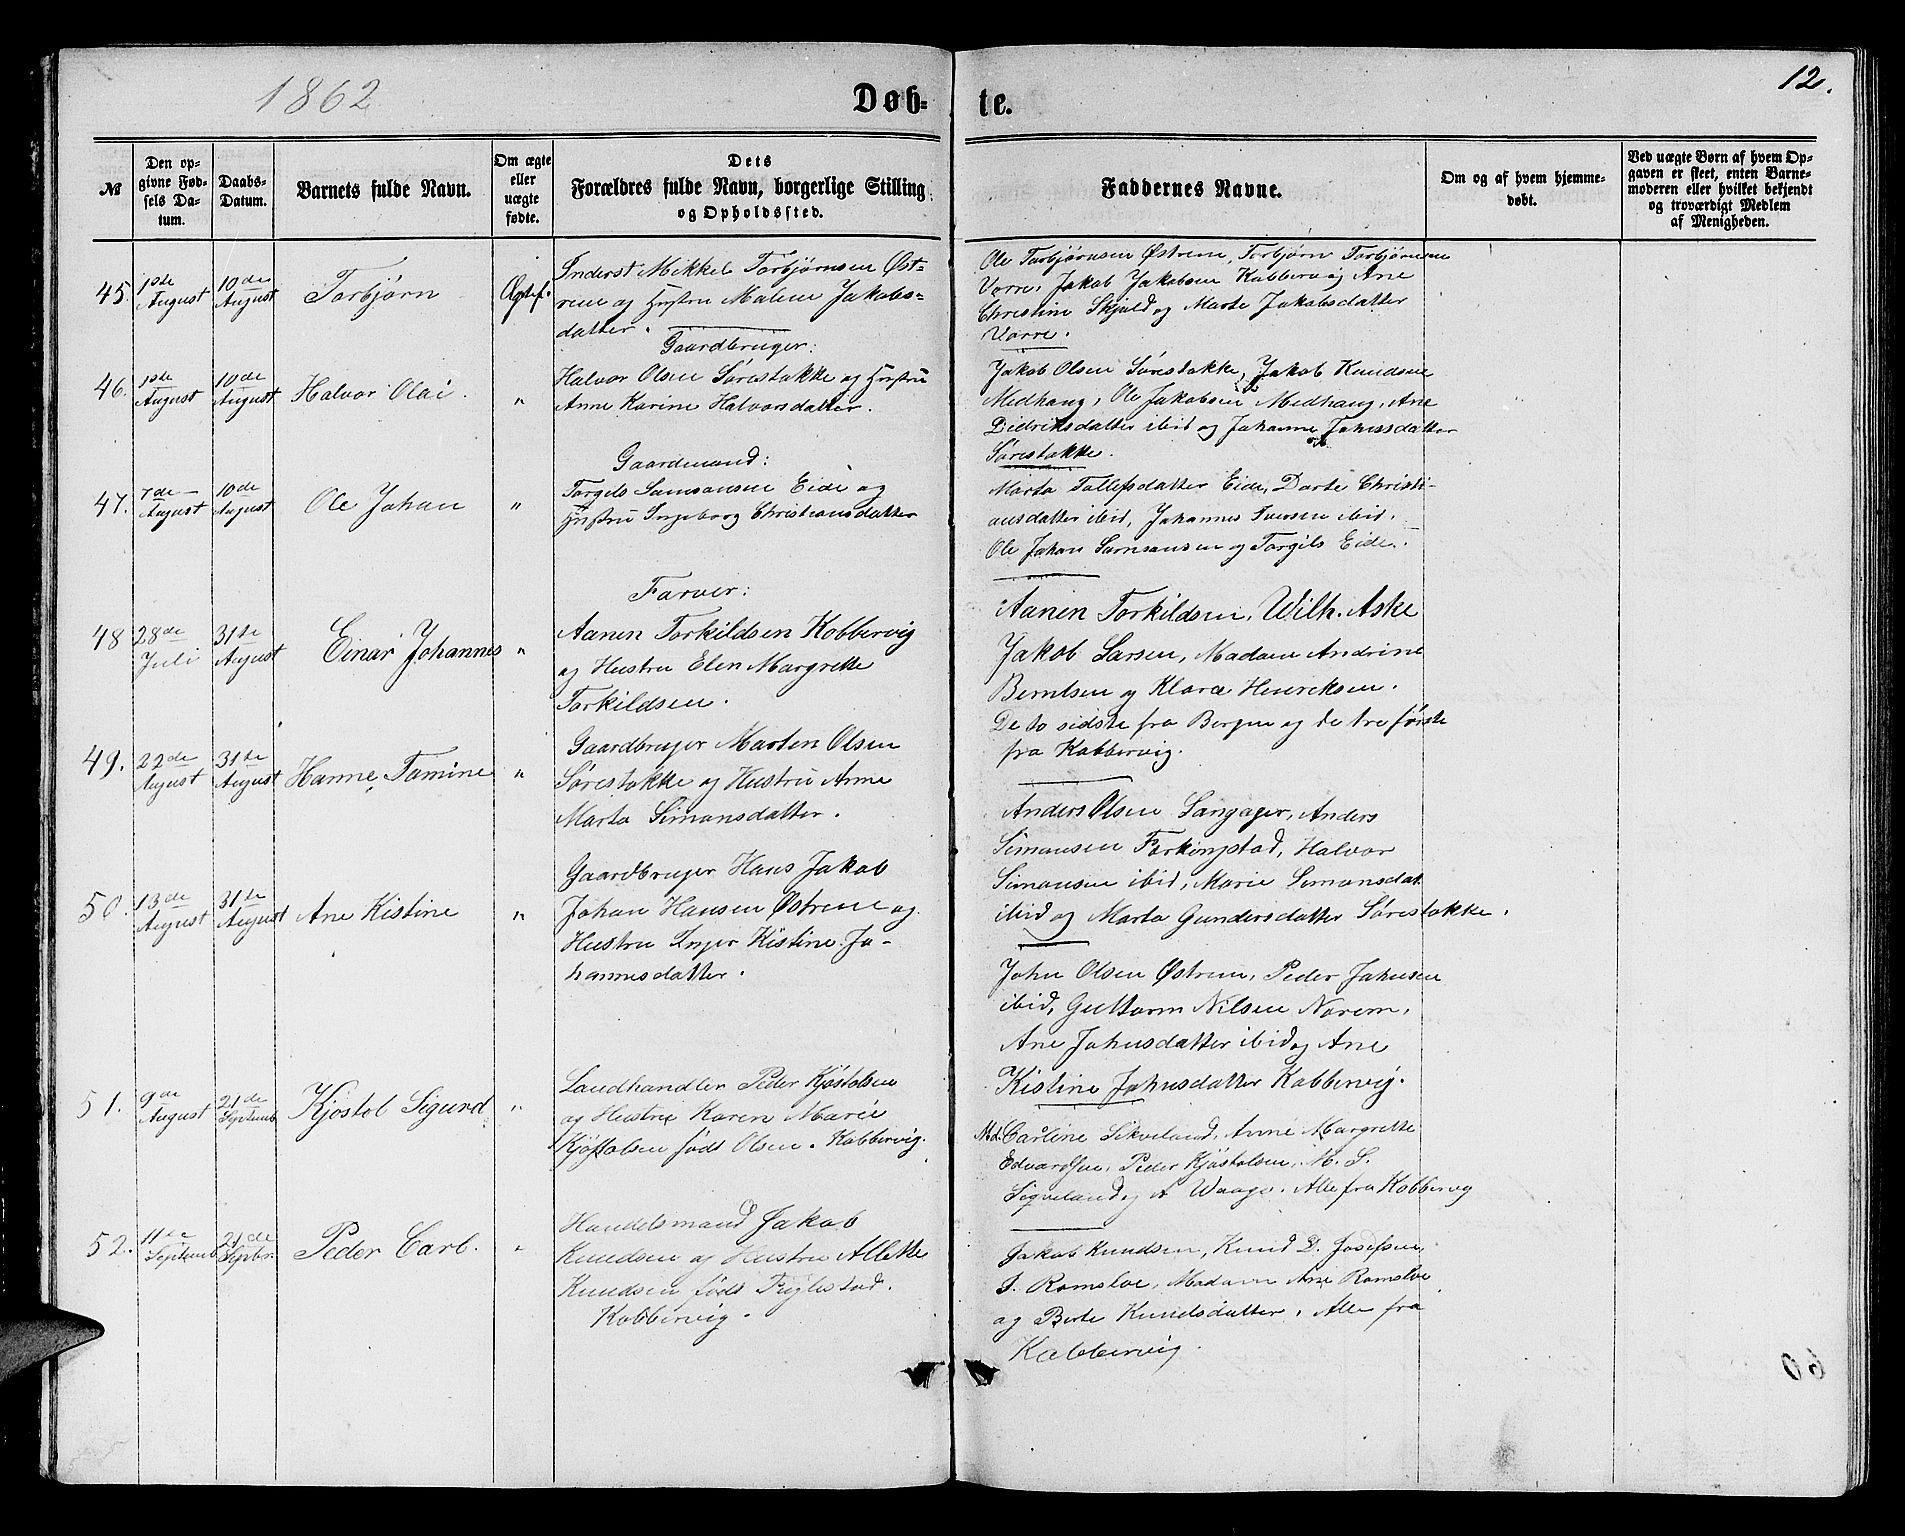 1862
Døb-
te.
12.
№
Den op-
givne Fød-
sels Da-
tum.
Daabs-
Datum.
Barnets fulde Navn.
Om ægte
eller
uægte
fødte.
Dets
Forældres fulde Navn, borgerlige Stilling
og Opholdssted.
Faddernes Navne.
Om og af hvem hjemme-
døbt.
Ved uægte Børn af hvem Op-
gaven er skeet, enten Barne-
moderen eller hvilket bekjendt
og troværdigt Medlem
af Menigheden.
45.
1ste
August
10de
August
Torbjørn
Ægtef.
Inderst Mikkel Torbjørnsen Øst-
rem og Hustru Malene Jakobs-
datter.
Ole Torbjørnsen Østrem, Torbjørn Torbjørnsen
Vorre, Jakob Jakobsen Kobbervig Ane
Christine Skjold og Marte Jakobsdatter
Vorre.
46.
1ste
August
10de
August
Halvor Olai.
"
Gaardbruger:
Halvor Olsen Sørestokke og Hustru
Anne Karine Halvorsdatter.
Jakob Olsen Sørestokke, Jakob Knudsen
Medhaug, Ole Jakobsen Medhaug, Ane
Didriksdatter ibid og Johanne Johnsdatter
Sørestokke.
47.
7de
August
10de
August
Ole Johan
"
Gaardmand:
Torgils Samsonsen Eide og
Hustru Ingeborg Christiansdatter
Marta Tollefsdatter Eide, Dorte Christi-
ansdatter ibid, Johannes Iversen ibid,
Ole Johan Samsonsen og Torgils Eide.
48
28de
Juli
31te
August
Einar Johannes
"
Farver:
Aanen Torkildsen Kobbervig
og Hustru Elen Margrette
Torkildsen.
Aanen Torkildsen, Wilh. Aske
Jakob Larsen, Madam Andrine
Berntsen og Klara Henriksen.
De to sidste fra Bergen og de tre første
fra Kobbervig.
49.
22de
August
31te
August
Hanne Tomine
"
Gaardbruger Morten Olsen
Sørestokke og Hustru Anne
Marta Simonsdatter.
Anders Olsen Langager, Anders
Simonsen Ferkingstad, Halvor
Simonsen ibid, Marie Simonsdat.
ibid og Marta Gundersdatter Sørestokke.
50.
13de
August
31te
August
Ane Kistine
"
Gaardbruger Hans Jakob
Johan Hansen Østrem og
Hustru Inger Kistine Jo-
hannesdatter.
John Olsen Østrem, Peder Johnsen
ibid, Guttorm Nilsen Norem,
Ane Johnsdatter ibid og Ane
Kistine Johnsdatter Kobbervig.
51.
9de
August
21de
Septemb.
Kjøstol Sigurd
"
Landhandler Peder Kjøstolsen
og Hustru Karen Marie
Kjøstolsen født Olsen. Kobbervig.
Md. Carline Sikveland, Anne Margrette
Edvardsen, Peder Kjøstolsen, M. S.
Sigveland og A Waage. Alle fra Kobbervig
52.
11te
Septemb.
21de
Septbr.
Peder Carl.
"
Handelsmand Jakob
Knudsen og Hustru Allette
Knudsen født Fuglestad.
Kobbervig.
Jakob Knudsen, Knud D. Josefsen,
S. Ramsloe, Madam Ane Ramsloe
og Berte Knudsdatter. Alle fra
Kobbervig.